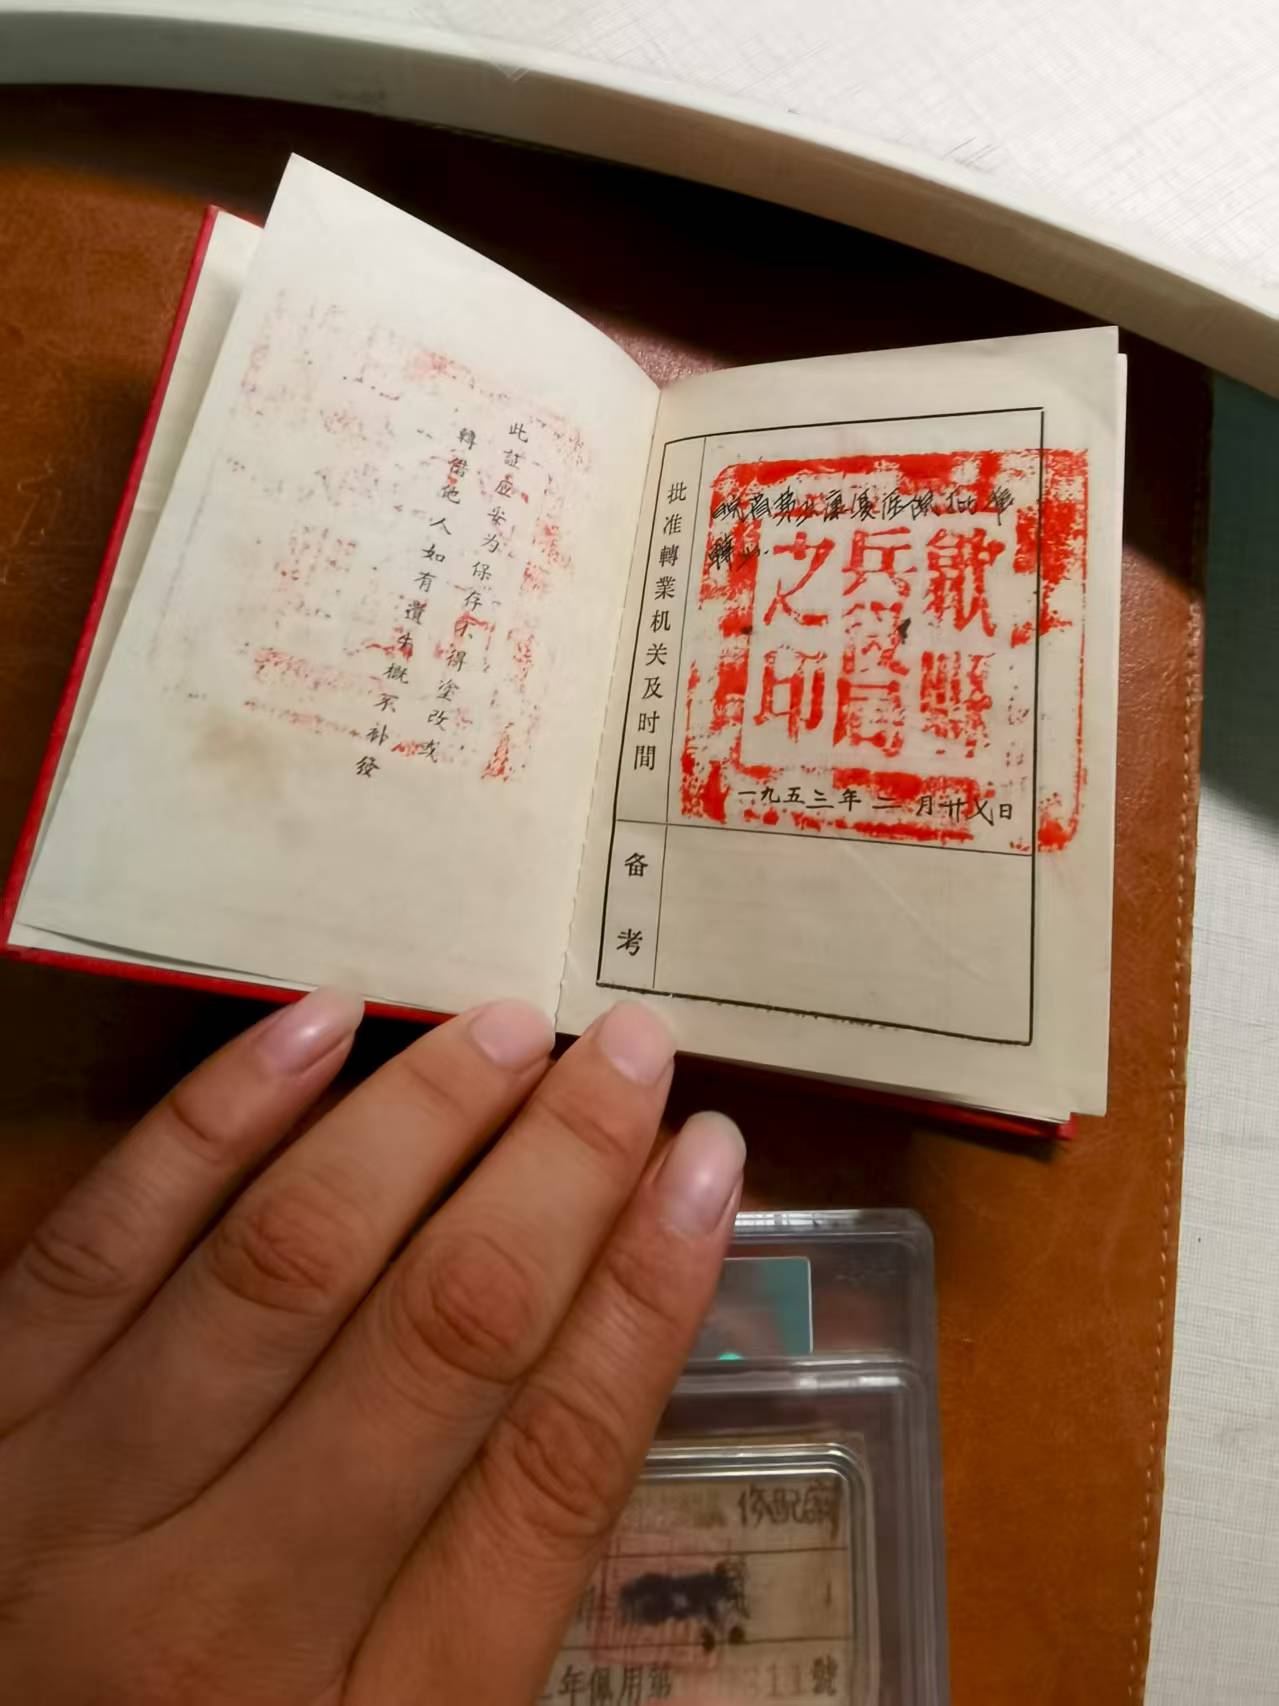 此証应妥为保存不得塗改或
轉借他人如有遺失概不补發
批准轉業机关及时間
皖
批准
轉业
歙縣
兵役局
之印
一九五三年二月廿乂日
备考
修配
年佩用第
11號